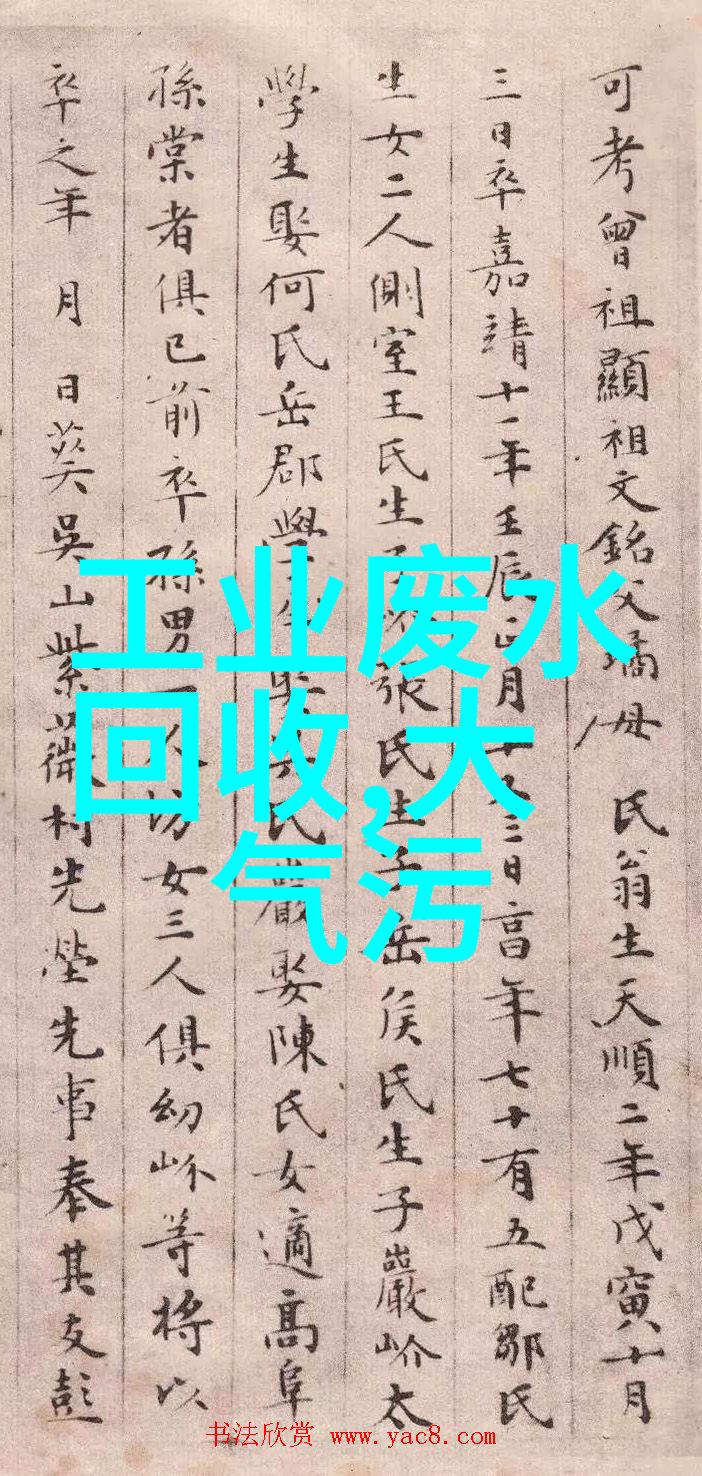 可考曾祖顯祖文銘父璚母 氏翁生天順二年戊寅十月
三日卒嘉靖十一年壬辰正月十又三日亯年七十有五配鄒氏
生女二人側室王氏生子 張氏生子岳侯氏生子巖岕太
學生娶何氏岳郡學生娶 氏巖娶陳氏女適高阜
孫棠者俱已前卒孫男一人坊女三人俱幼岕等將以
卒之年 月 日葬吳山紫薇村先塋先事奉其友彭
工业废水
回收,大
气污
书法欣赏 www.yac8.com